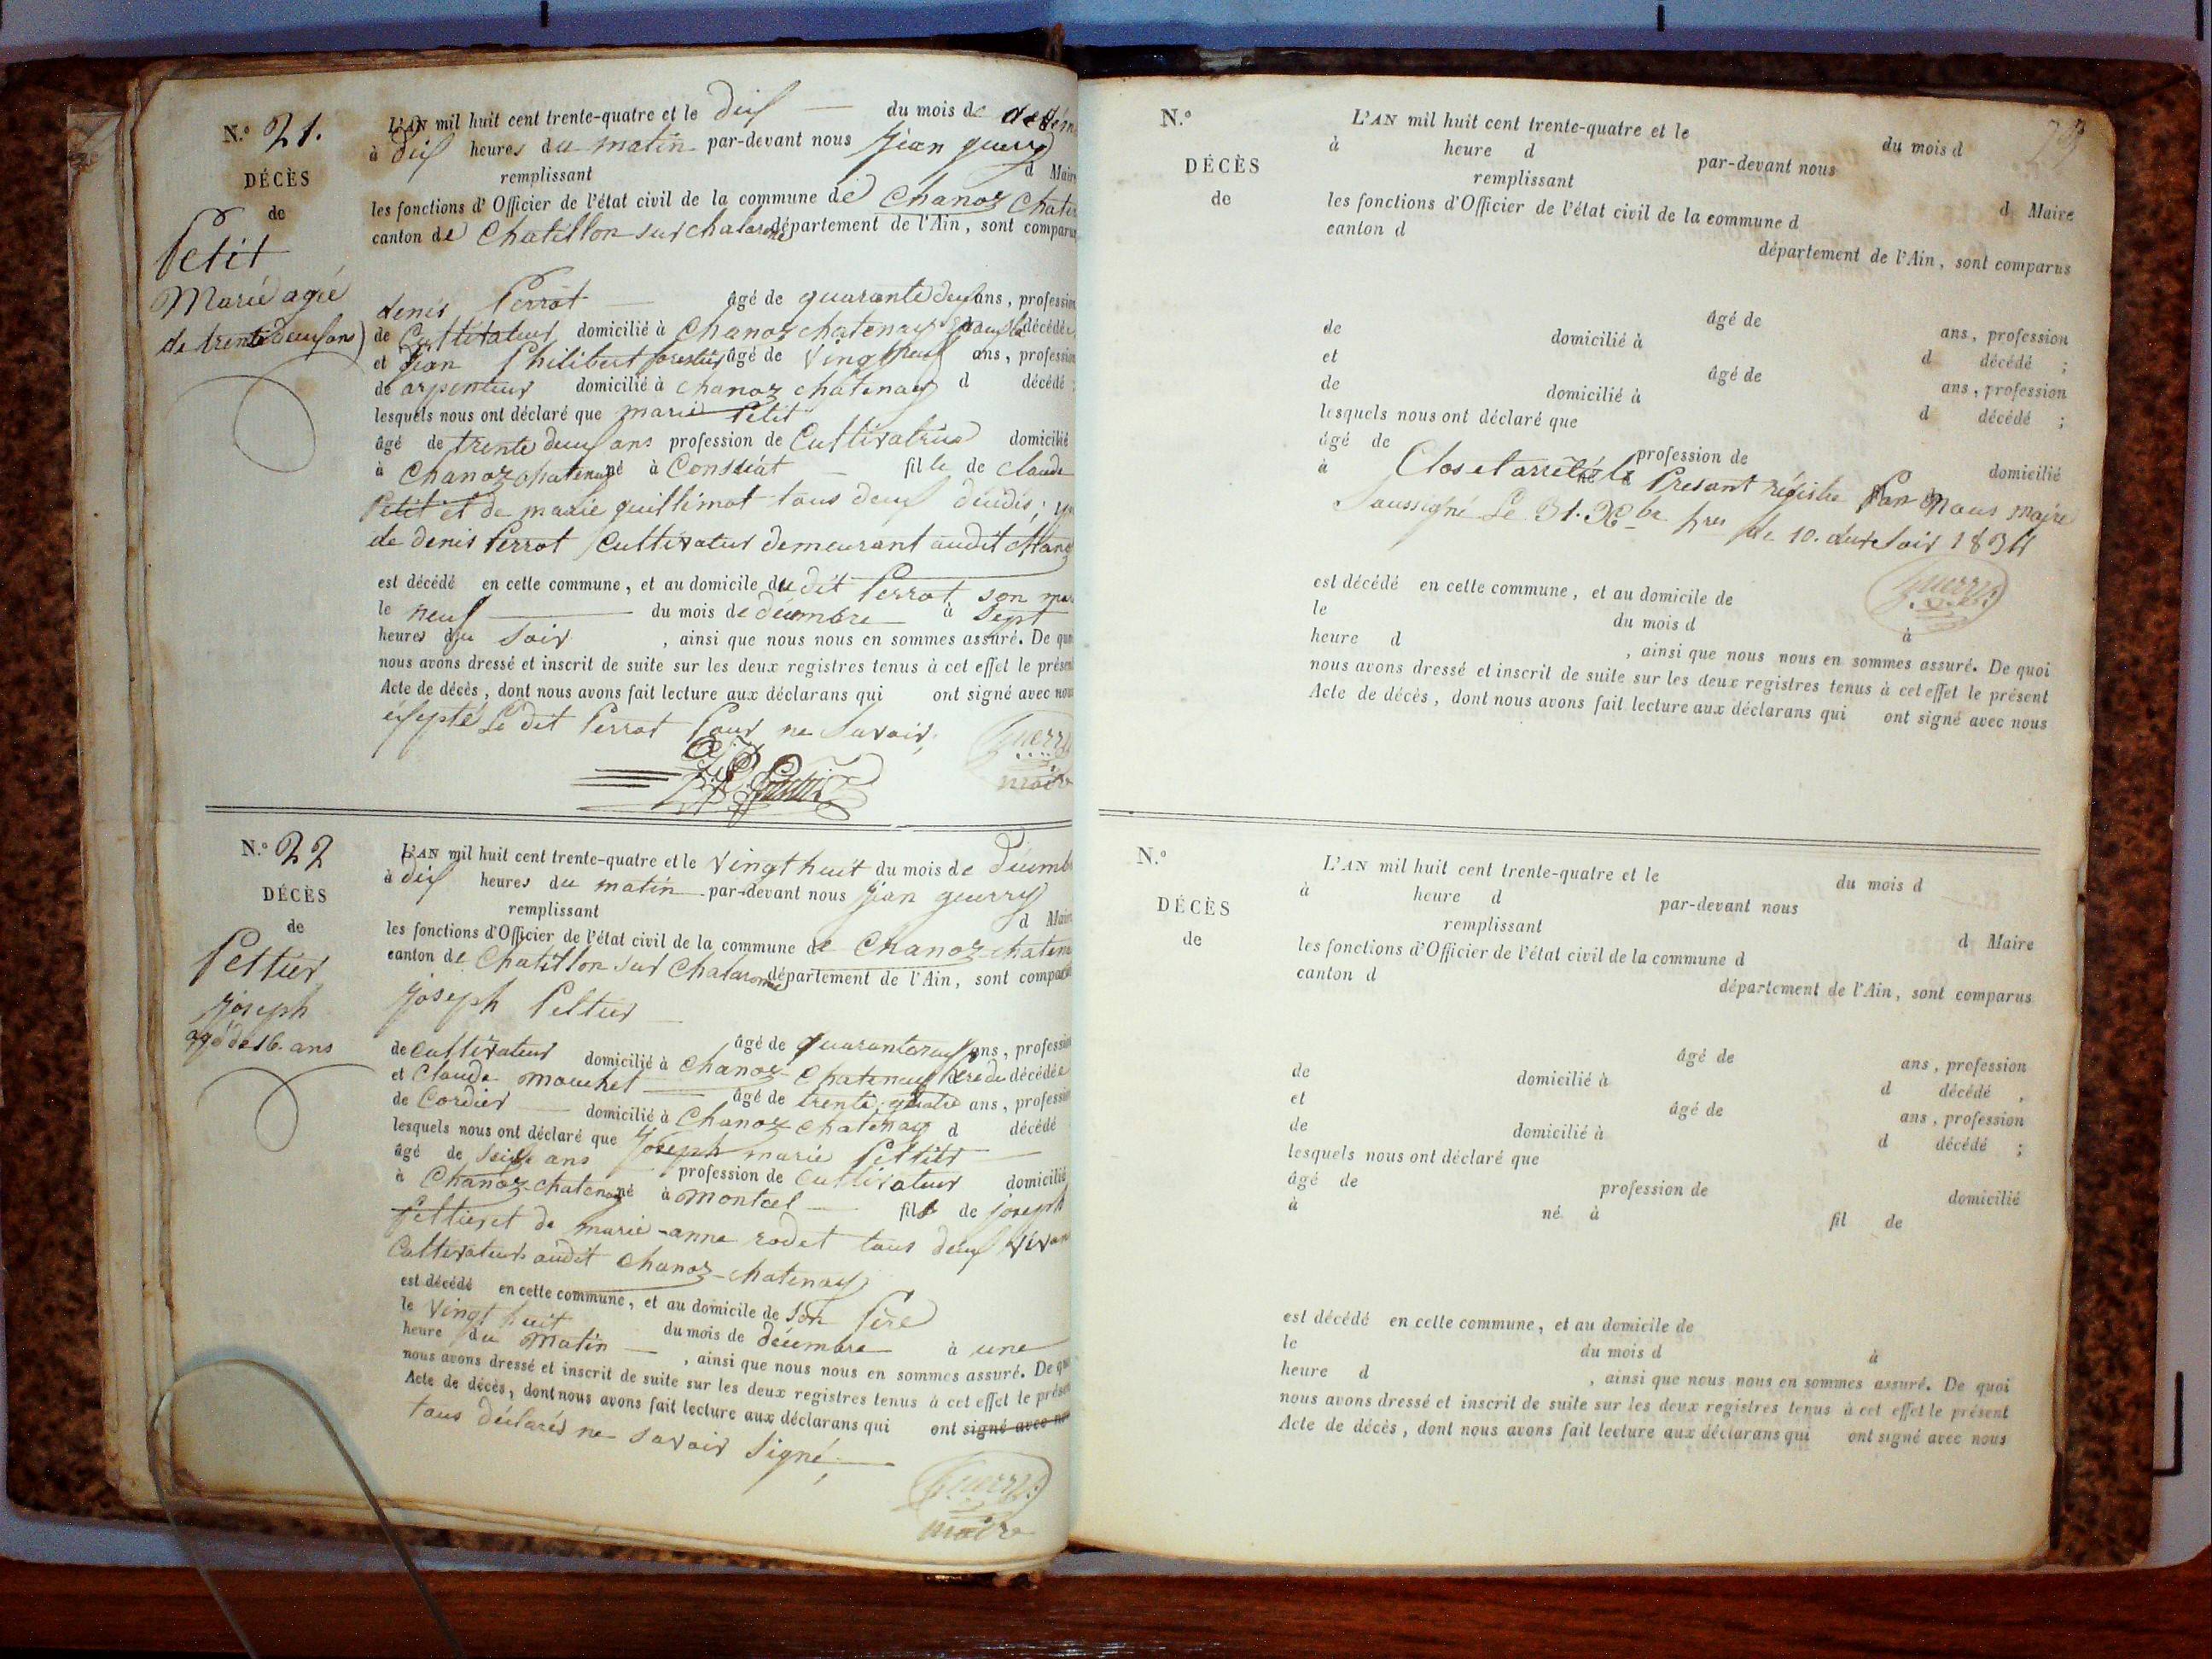 N.o 21.
DÉCÈS
de
Petit
Marie agée
de trente deux ans
L'AN mil huit cent trente-quatre et le dix du mois de
à dix heures du matin par-devant nous jean guerry
remplissant d Maire
les fonctions d'Officier de l'état civil de la commune de Chanoz Chaten
canton de Chatillon sur chalaronne département de l'Ain, sont comparus
denis Perrot âgé de quarante deux ans, profession
de Cultivateur domicilié à Chanoz chatenay époux de la décédée
et jean Philibert forestier âgé de Vingt neuf ans, profession
de arpenteur domicilié à chanoz chatenay d décédé ;
lesquels nous ont déclaré que marie Petit
âgé de trente deux ans profession de Cultivatrice domicilié
à Chanoz chatenay né à Condeiat fille de claude
Petit et de marie guillimot tous deux décédés ;
de denis Perrot Cultivateur demeurant audit Chano
est décédé en cette commune, et au domicile du dit Perrot son mari
le neuf du mois de décembre à Sept
heures du Soir, ainsi que nous nous en sommes assuré. De quoi
nous avons dressé et inscrit de suite sur les deux registres tenus à cet effet le présent
Acte de décès, dont nous avons fait lecture aux déclarans qui ont signé avec nous
éxepté Le dit Perrot Pour ne Savoir.
Guerry
maire
N.o 22
DÉCÈS
de
Peltier
joseph
agé de 16. ans
L'AN mil huit cent trente-quatre et le Vingt huit du mois de Décemb
à dix heures du matin par-devant nous jean guerry
remplissant d Maire
les fonctions d'Officier de l'état civil de la commune de Chanoz-chaten
canton de Chatillon sur Chalaronne département de l'Ain, sont comparus
joseph Peltier
âgé de quarante neuf ans, profession
de Cultivateur domicilié à Chanoz Chatenay Père du décédé
et Claude mouchet âgé de trente quatre ans, profession
de Cordier domicilié à Chanoz chatenay d décédé
lesquels nous ont déclaré que joseph marie Peltier
âgé de Seize ans profession de Cultivateur domicilié
à Chanoz-chatenay né à montcel fils de joseph
Peltier et de marie-anne rodet tous deux Vivan
Cultivateurs audit Chanoz-chatenay
est décédé en cette commune, et au domicile de Son Père
le Vingt huit du mois de décembre à une
heure du Matin, ainsi que nous nous en sommes assuré. De quoi
nous avons dressé et inscrit de suite sur les deux registres tenus à cet effet le présent
Acte de décès, dont nous avons fait lecture aux déclarans qui ont signé avec nous
tous déclarés ne Savoir Signé.
Guerry
maire
N.o
DÉCÈS
de
L'AN mil huit cent trente-quatre et le du mois d
à heure d par-devant nous
remplissant d Maire
les fonctions d'Officier de l'état civil de la commune d
canton d département de l'Ain, sont comparus
âgé de ans, profession
de domicilié à d décédé ;
et âgé de ans, profession
de domicilié à d décédé ;
lesquels nous ont déclaré que
âgé de profession de domicilié
à Clos et arrêté le Présent régistre Par Nous maire
Soussigné Le 31. Xbre hres de 10. du Soir 1834
Guerry
est décédé en cette commune, et au domicile de
le du mois d à
heure d , ainsi que nous nous en sommes assuré. De quoi
nous avons dressé et inscrit de suite sur les deux registres tenus à cet effet le présent
Acte de décès, dont nous avons fait lecture aux déclarans qui ont signé avec nous
N.o
DÉCÈS
de
L'AN mil huit cent trente-quatre et le du mois d
à heure d par-devant nous
remplissant d Maire
les fonctions d'Officier de l'état civil de la commune d
canton d département de l'Ain, sont comparus
âgé de ans, profession
de domicilié à d décédé ,
et âgé de ans, profession
de domicilié à d décédé ;
lesquels nous ont déclaré que
âgé de profession de domicilié
à né à fil de
est décédé en cette commune, et au domicile de
le du mois d à
heure d , ainsi que nous nous en sommes assuré. De quoi
nous avons dressé et inscrit de suite sur les deux registres tenus à cet effet le présent
Acte de décès, dont nous avons fait lecture aux déclarans qui ont signé avec nous